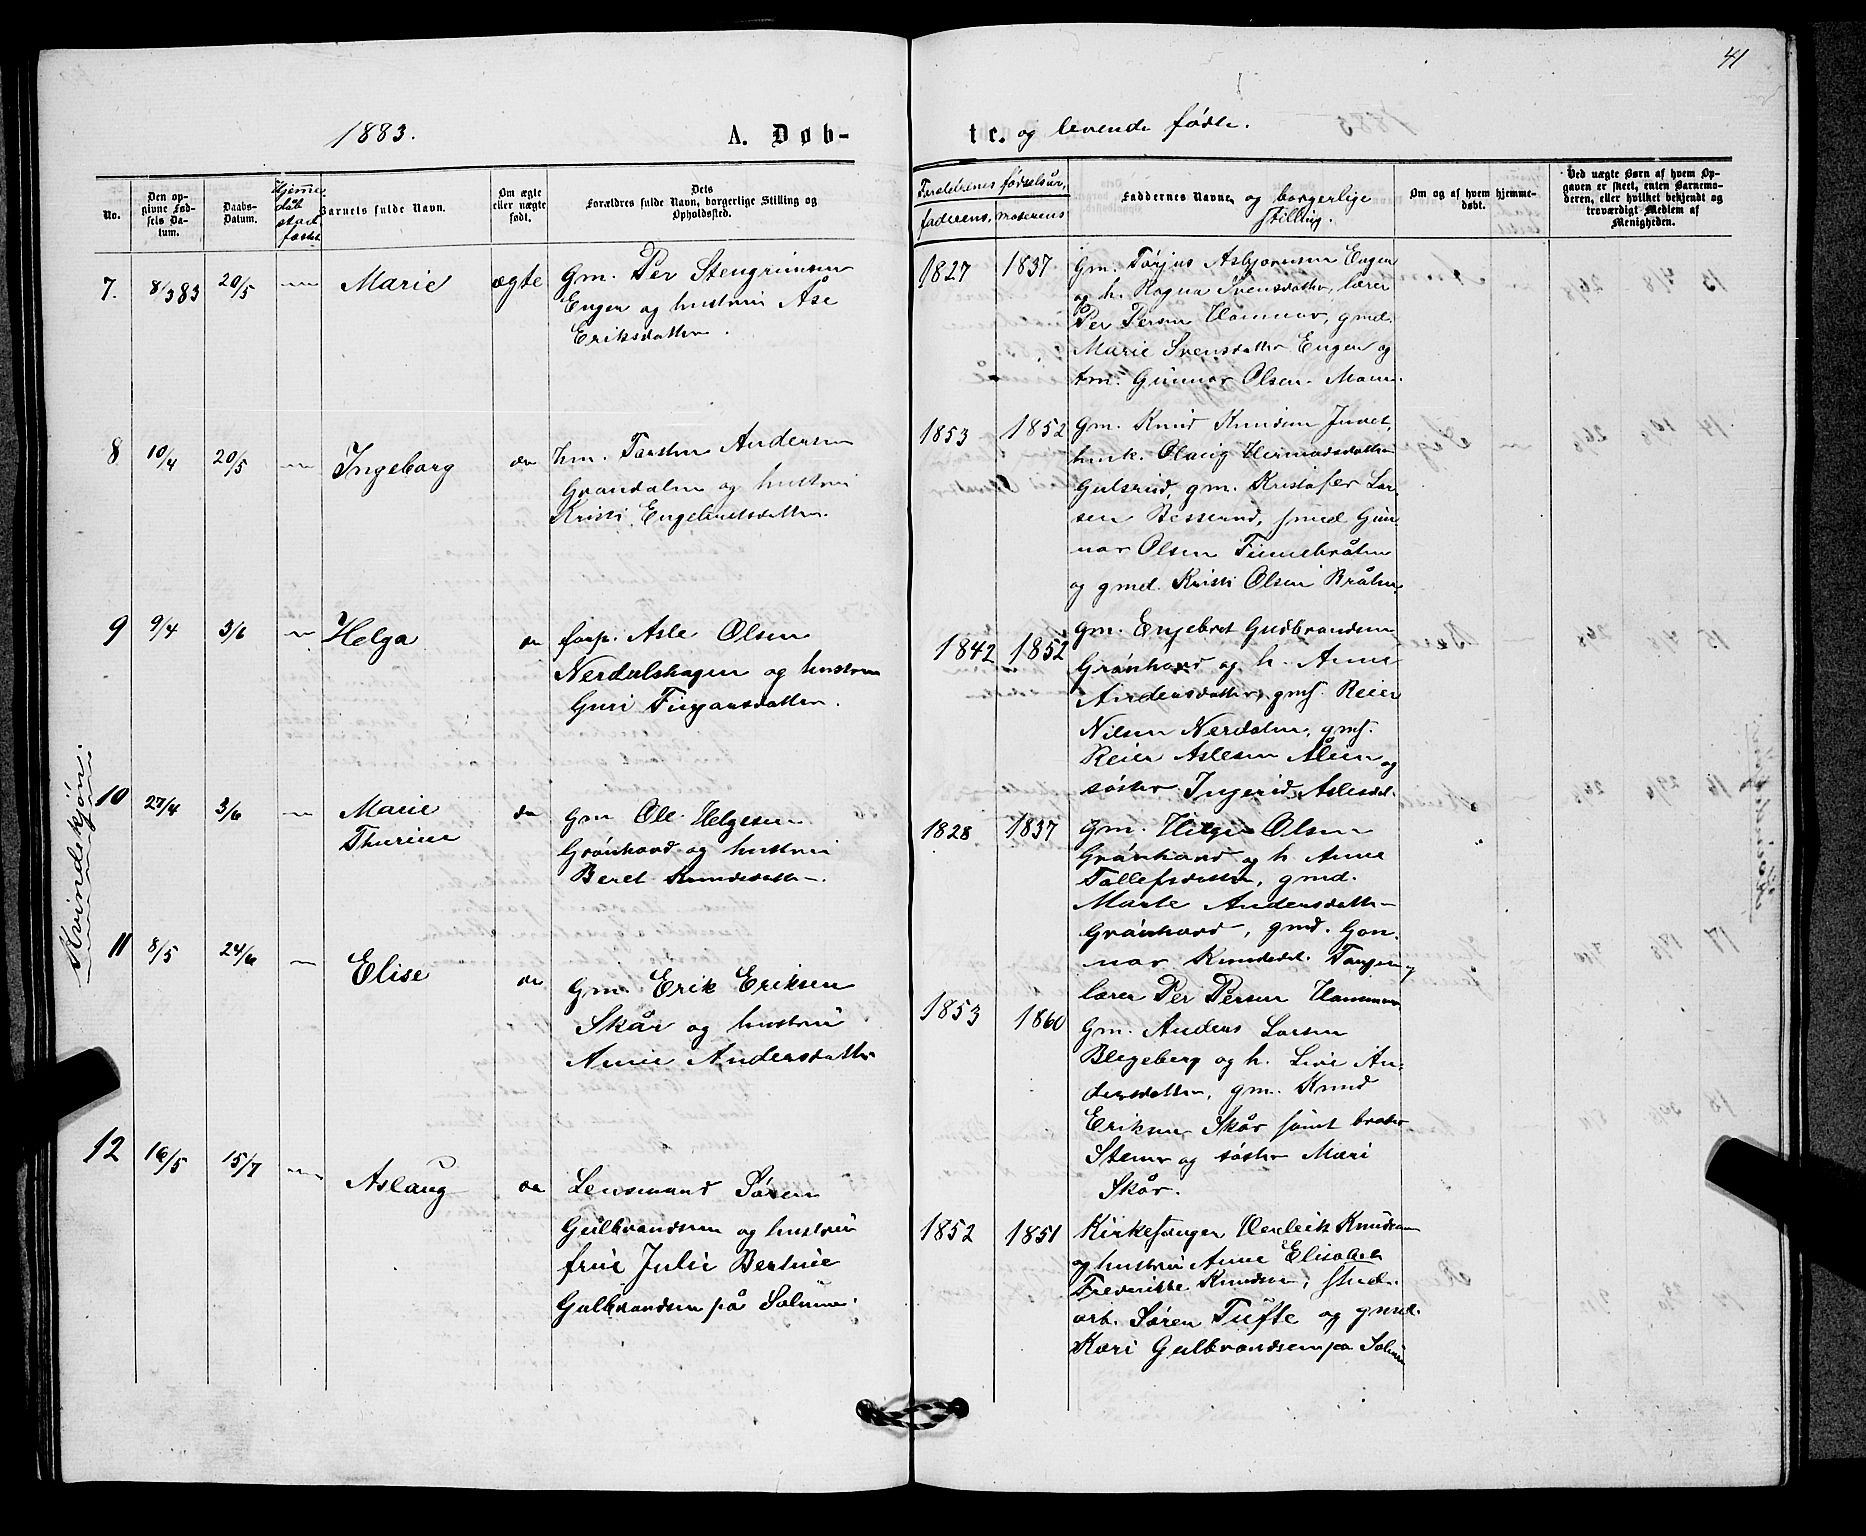 41
1883.
A. Døb-
te. og levende fødte.
No.
Den op-
givne Fød-
sels Da-
tum.
Daabs-
Datum.
Hjemme
dåb
stad
fæstet
Barnets fulde Navn.
Om ægte
eller uægte
født.
Dets
Forældres fulde Navn, borgerlige Stilling og
Opholdssted.
Forældrenes fødselsår,
faderens, moderens
Faddernes Navne og borgerlige
stilling.
Om og af hvem hjemme-
døbt.
Ved uægte Børn af hvem Op-
gaven er skeet, enten Barnemo-
deren, eller hvilket bekjendt og
troværdigt Medlem af
Menigheden.
Kvindekjøn.
7. 8/3 83 20/5 Marie ægte
Gm. Per Stengrimsen
Engen og hustru Åse
Eriksdatter.
1827 1837
Gm. Torjus Asbjørnsen Engen
og h. Ragna Svensdatter, lærer
Per Persen Hammer, gmd.
Marie Svensdatter Engen og
Gunnar Olsen
8 10/4 20/5 Ingeborg do
hm. Torsten Andersen
Grøndalen og hustru
Kristi Engebretsdatter.
1853 1852
Gm. Knud Knudsen Juvet,
Olaug Hermodsdatter
Gulsrud, gm. Kristofer Lar-
sen Besserud, Gun-
nar Olsen Finnebråten
og gmd. Kristi Olsen Bråten.
9 9/4 3/6 Helga do
forp. Asle Olsen
Nerdalshagen og hustru
Guri Fingarsdatter.
1842 1852
gm. Engebret Gudbrandsen
Grønhovd og h. Anne
Andersdatter, gmf. Reier
Nilsen Nerdalen, gmf.
Reier Aslesen Åleen og
søster Ingerid Aslesdt.
10 27/4 3/6 Marie
Thurine do
Gm Ole Helgesen
Grønhovd og hustru
Beret Knudsdatter.
1828 1837
Gm. Helge Olsen
Grønhovd og h. Anne
Tollefsdatter, gmd.
Marte Andersdatter
Grønhovd, gmd. Gon-
nor Knudsdt. Tangen og
lærer Per Persen Hammer
11 8/5 24/6 Elise do
Gm. Erik Eriksen
Skår og hustru
Anne Andersdatter
1853 1860
Gm. Anders Larsen
Blegeberg og h. Live An-
dersdatter, gm. Knud
Eriksen Skår samt broder
Stener og søster Mari
Skår.
12 16/5 15/7 Aslaug do
Lensmand Søren
Gulbrandsen og hustru
frue Julie Bertine
Gulbrandsen på Solum.
1852 1851
Kirkesanger Henderik Knudsen
og hustru Anne Elisabet
Frederikke Knudsen, stud.
art. Søren Tufte og gmd.
Kari Gulbrandsen på